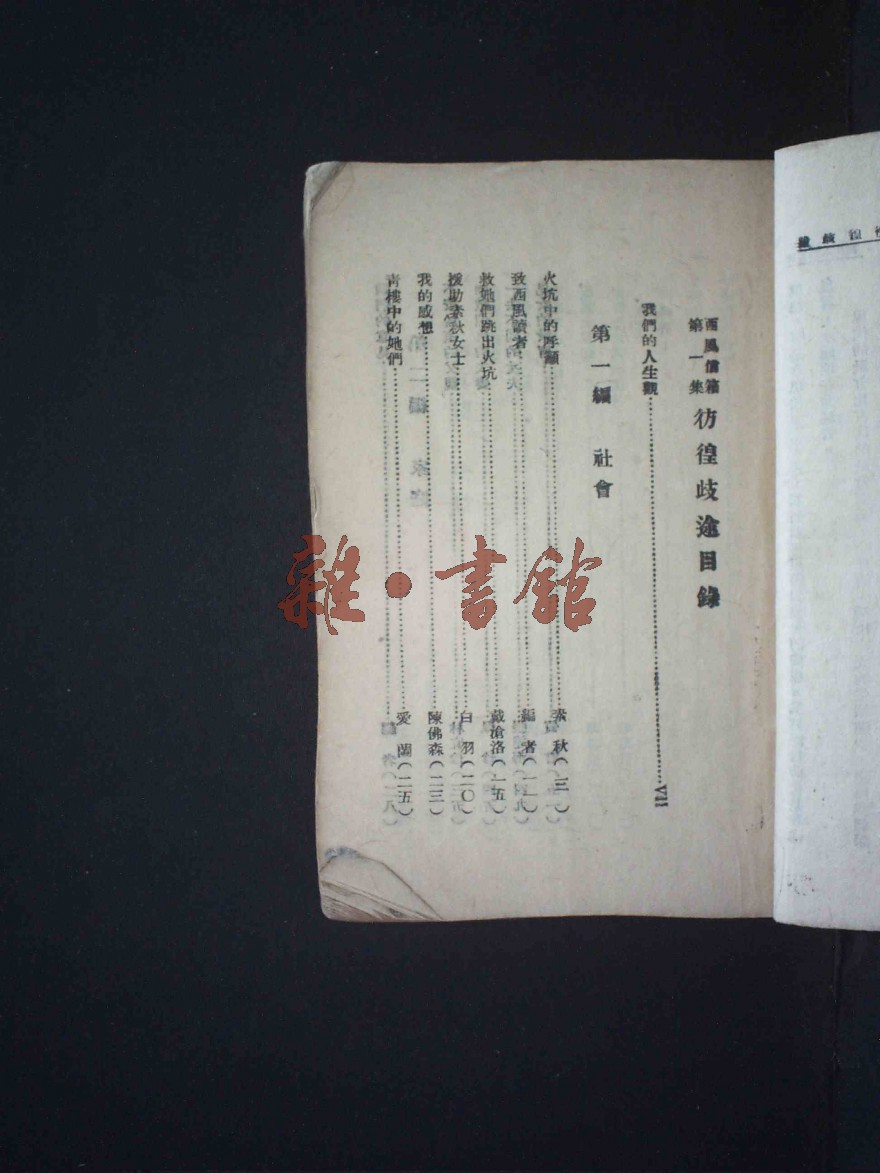 西風信箱
第一集
彷徨歧途目錄
我們的人生觀 VII
第一編 社會
火坑中的呼籲 素秋(三)
致西風讀者 編者(一一)
救她們跳出火坑 戴滄洛(一五)
援助素秋女士 白羽(二〇)
我的感想 陳佛森(二三)
青樓中的她們 愛蘭(二五)
雜·書館